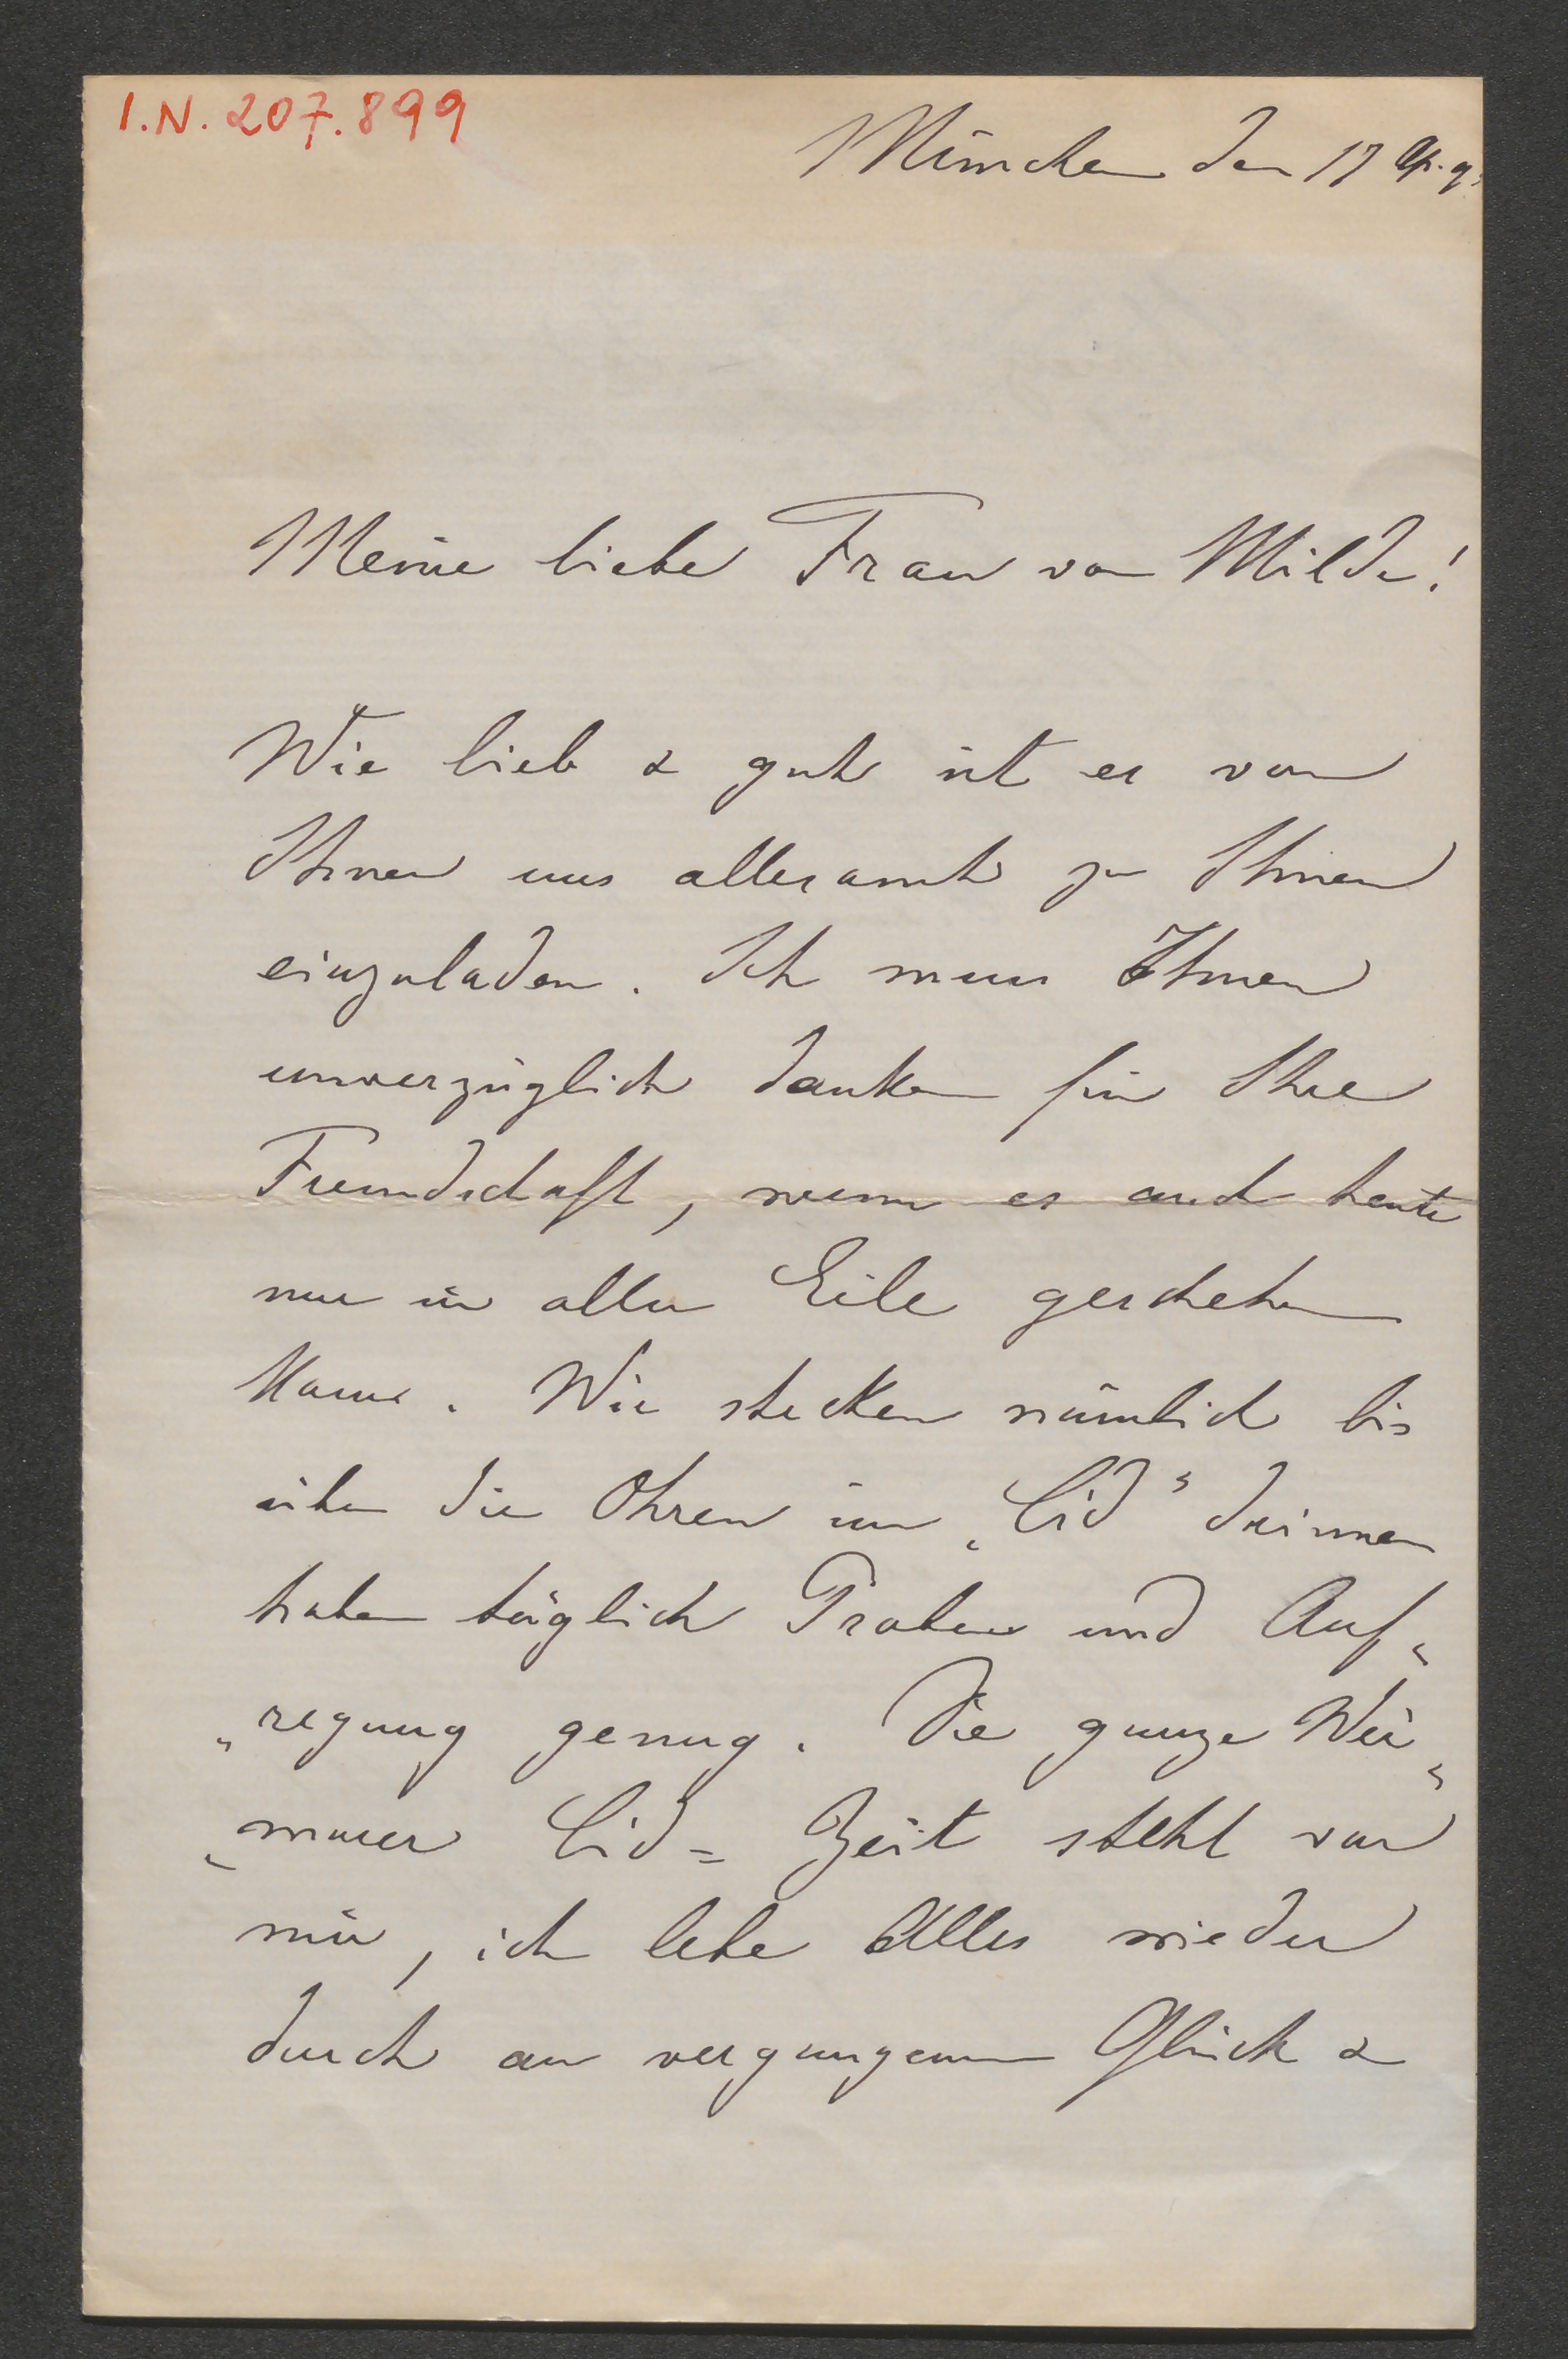 I.N. 207.899
München den 17 Ap. 9
Meine liebe Frau von Milde!
Wie lieb & gut ist es von
Ihnen uns allesamt zu Ihnen
einzuladen. Ich muss Ihnen
unverzüglich danken für Ihre
Freundschaft, wenn es auch heute
nur in aller Eile geschehen
kann. Wir stecken nämlich bis
über die Ohren im „Cid" drinnen
haben täglich Proben und Auf„
„regung genug. Die ganze Wei„
„marer Cid= Zeit steht vor
mir, ich lebe Alles wieder
durch an vergangenem Glück &